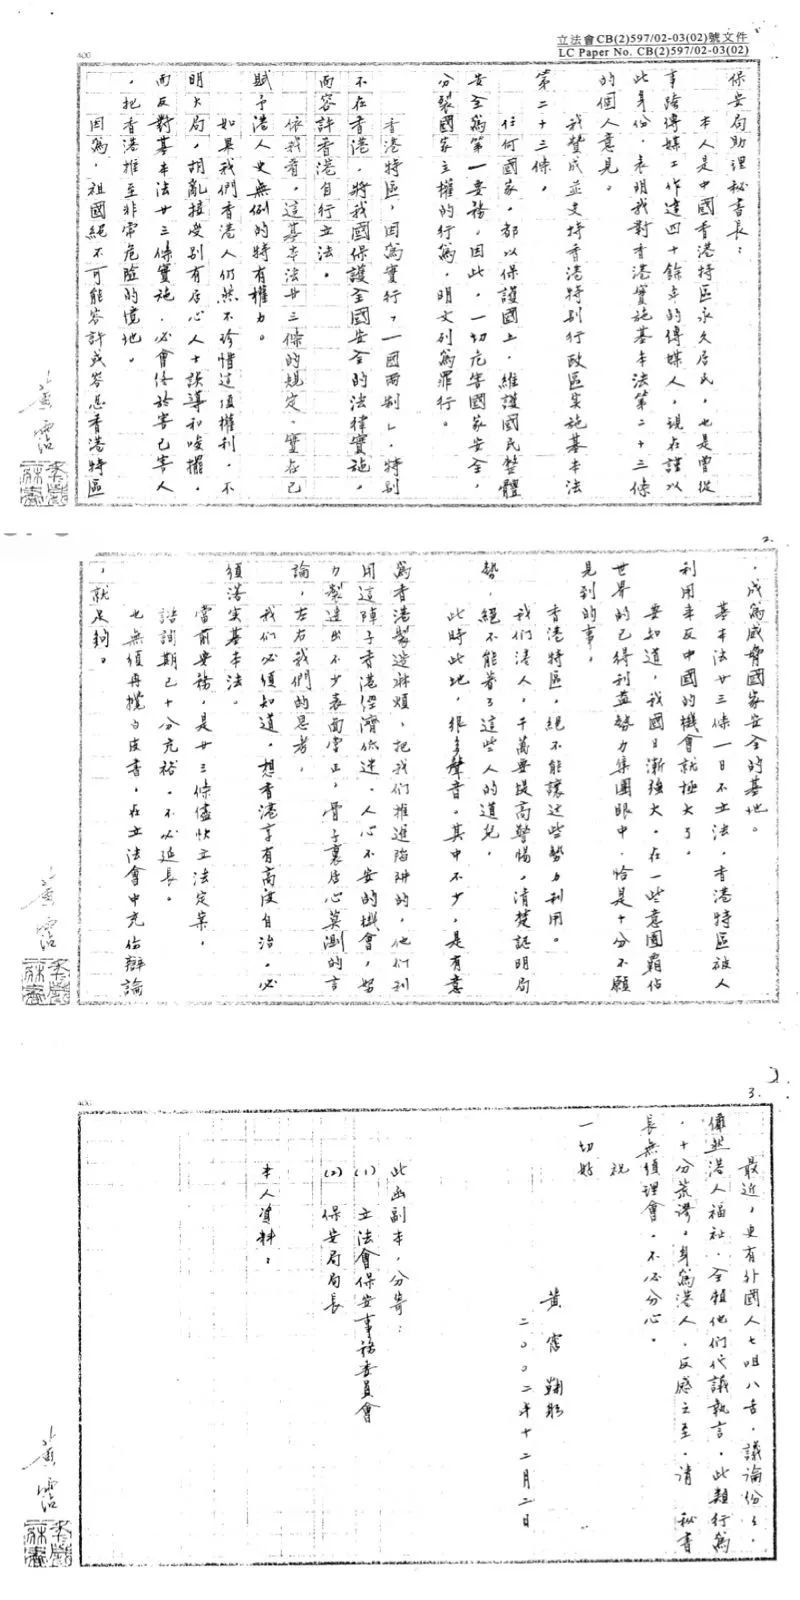 立法會CB(2)597/02-03(02)號文件
LC Paper No. CB(2)597/02-03(02)
400
保安局助理秘書長：
本人是中國香港特區永久居民，也是曾從
事跨傳媒工作達四十餘年的傳媒人，現在謹以
此身份，表明我對香港實施基本法第二十三條
的個人意見。
我贊成並支持香港特別行政區實施基本法
第二十三條。
任何國家，都以保護國土，維護國民整體
安全為第一要務，因此，一切危害國家安全，
分裂國家主權的行為，明文列為罪行。
香港特區，因為實行「一國兩制」，特別
不在香港，將我國保護全國安全的法律實施，
而容許香港自行立法。
依我看，這基本法廿三條的規定，實在已
賦予港人史無例的特有權力。
如果我們香港人仍然不珍惜這項權利，不
明大局，胡亂接受別有居心人士誤導和唆擺，
而反對基本法廿三條實施，必會終於害己害人
，把香港推至非常危險的境地。
因為，祖國絕不可能容許或容忍香港特區
黃霑
2.
，成為威脅國家安全的基地。
基本法廿三條一日不立法，香港特區被人
利用來反中國的機會就極大了。
要知道，我國日漸強大，在一些意圖霸佔
世界的已得利益勢力集團眼中，恰是十分不願
見到的事。
香港特區，絕不能讓這些勢力利用。
我們港人，千萬要提高警惕，清楚認明局
勢，絕不能著了這些人的道兒，
此時此地，很多聲音，其中不少，是有意
為香港製造麻煩，把我們推進陷阱的，他們利
用這陣子香港經濟低迷，人心不安的機會，努
力製造出不少表面堂正，骨子裏居心莫測的言
論，左右我們的思考，
我們必須知道，想香港享有高度自治，必
須落實基本法。
當前要務，是廿三條儘快立法定案，
諮詢期已十分充裕，不必延長。
也無須再攪白皮書，在立法會中充份辯論
，就足夠。
黃霑
3.
400
最近，更有外國人七咀八舌，議論份份，
儼然港人福祉，全賴他們代議執言，此類行為
，十分荒謬。身為港人，反感之至，請 秘書
長無須理會，不必分心。
祝
一切好
黃霑 鞠躬
二〇〇二年十二月二日
此函副本，分寄：
(1) 立法會保安事務委員會
(2) 保安局局長
本人資料：
黃霑